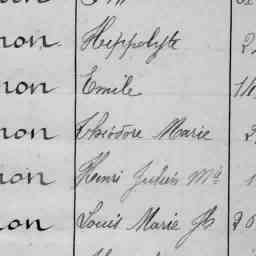 non Hippolyte 2
non Emile 14
non Théodore Marie
non Henri Jules Mie
non Louis Marie Jh 20